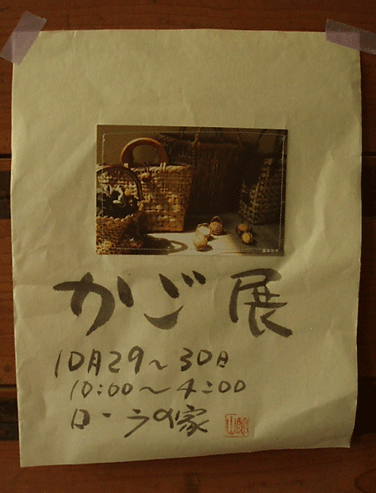 かご展
10月29～30日
10:00～4:00
ローラの家